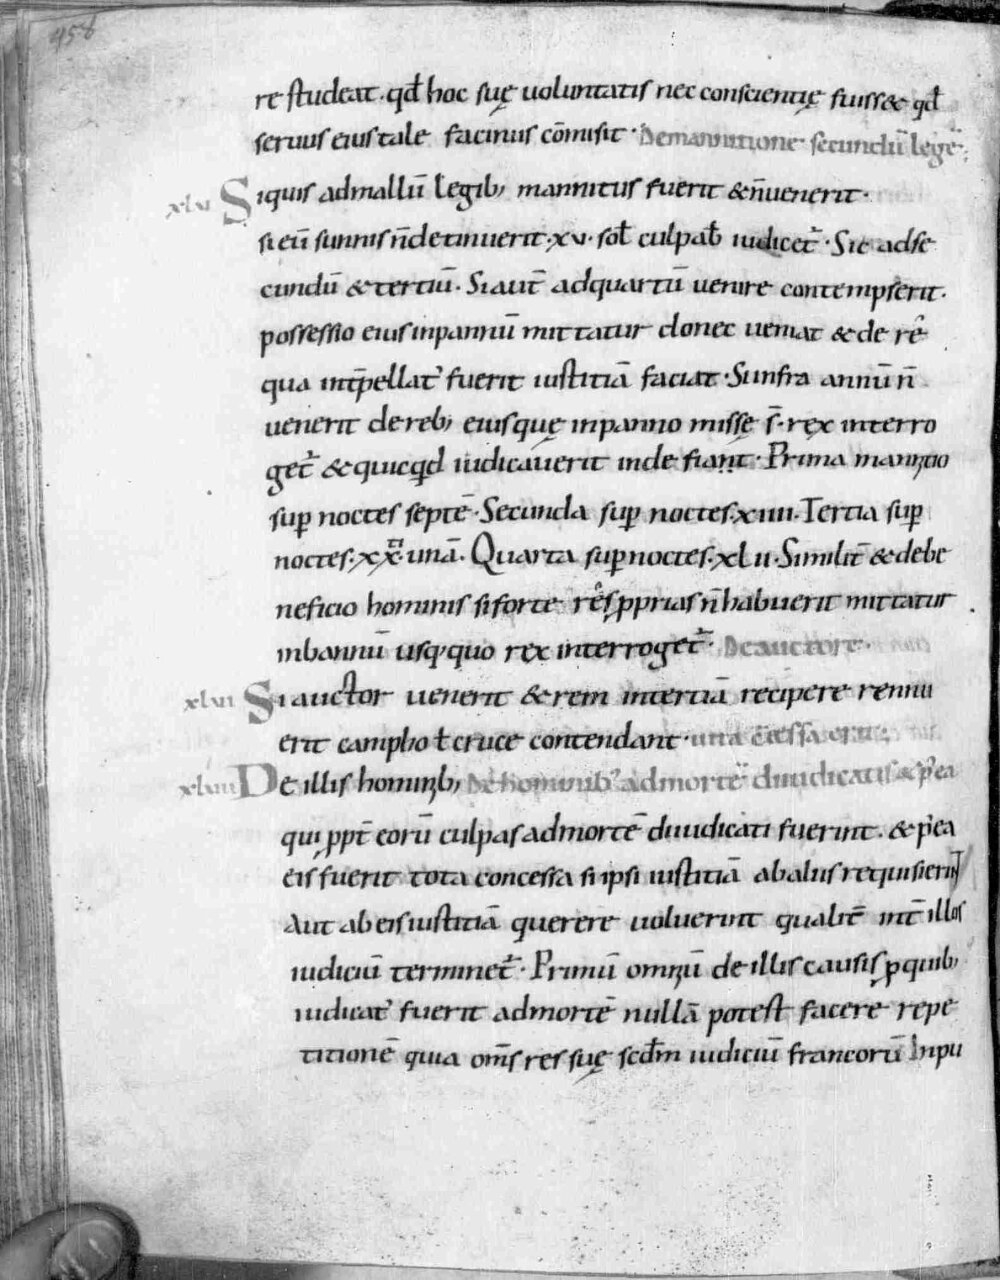 458
re studeat. qđ hoc suę uoluntatis nec conscientię fuiss& qđ
seruus eius tale facinus cōmisit. De mannitione secundū legē.
xlv Siquis admallū legib; mannitus fuerit &n̄uenerit.
si eū sunnis n̄detinuerit. xv. sol culpab iudicet̄. Sic adse
cundū &tertiū. Si aut̄ adquartū uenire contempserit.
possessio eius inpannū mittatur donec ueniat & de rē
qua int̄pellat' fuerit iustitiā faciat. Si infra annū n̄
uenerit de reb; eiusquę inpanno missę s̄. rex interro
get̄ & quicqđ iudicauerit inde fiant. Prima mannitio
sup noctes septē. Secunda sup noctes. xiiii. Tertia sup
noctes. xx. unā. Quarta sup noctes. xl ii. Similit̄ & debe
neficio hominis si forte rēs pprias n̄habuerit mittatur
inbannū usq;quo rex interroget̄. De auctore.
xlvi Si auctor uenerit & rem intertiā recipere rennu
erit campho ł cruce contendant.
xlvii De illis hominib; De hominib' admortē diiudicatis & p̄ea
qui ppt̄ eorū culpas admortē diiudicati fuerint. & p̄ea
eis fuerit tota concessa si ipsi iustitiā ab aliis requisierint
Aut ab eis iustitiā querere uoluerint qualit̄ int̄ illos
iudiciū terminet̄. Primū omniū de illis causis p quib;
iudicat' fuerit admortē nullā potest facere repe
titionē quia om̄s res suę scđm iudiciū francorū Inpu